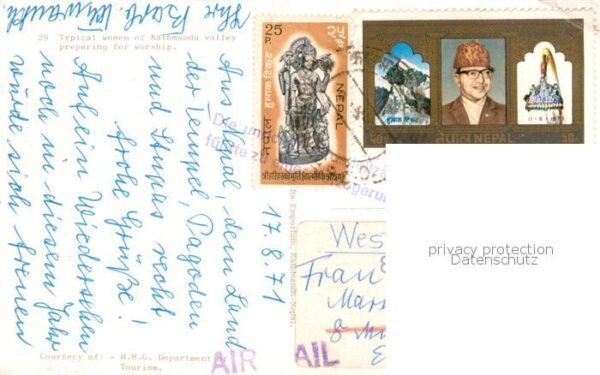 29 Typical women of Kathmandu valley
preparing for worship.
Aus Nepal, dem Land
der Tempel, Pagoden
und Stupas recht
frohe Grüße!
Auf ein Wiedersehen
noch in diesem Jahr
würde sich freuen
Ihre Barb.
17.8.71
Courtesy of: - H.M.G. Department
Tourism.
AIR
AIL
25
P.
२५
नेपाल हुलाक टिकट
NEPAL
नेपाल NEPAL
50
Die
für
West
Frau
8
privacy protection
Datenschutz